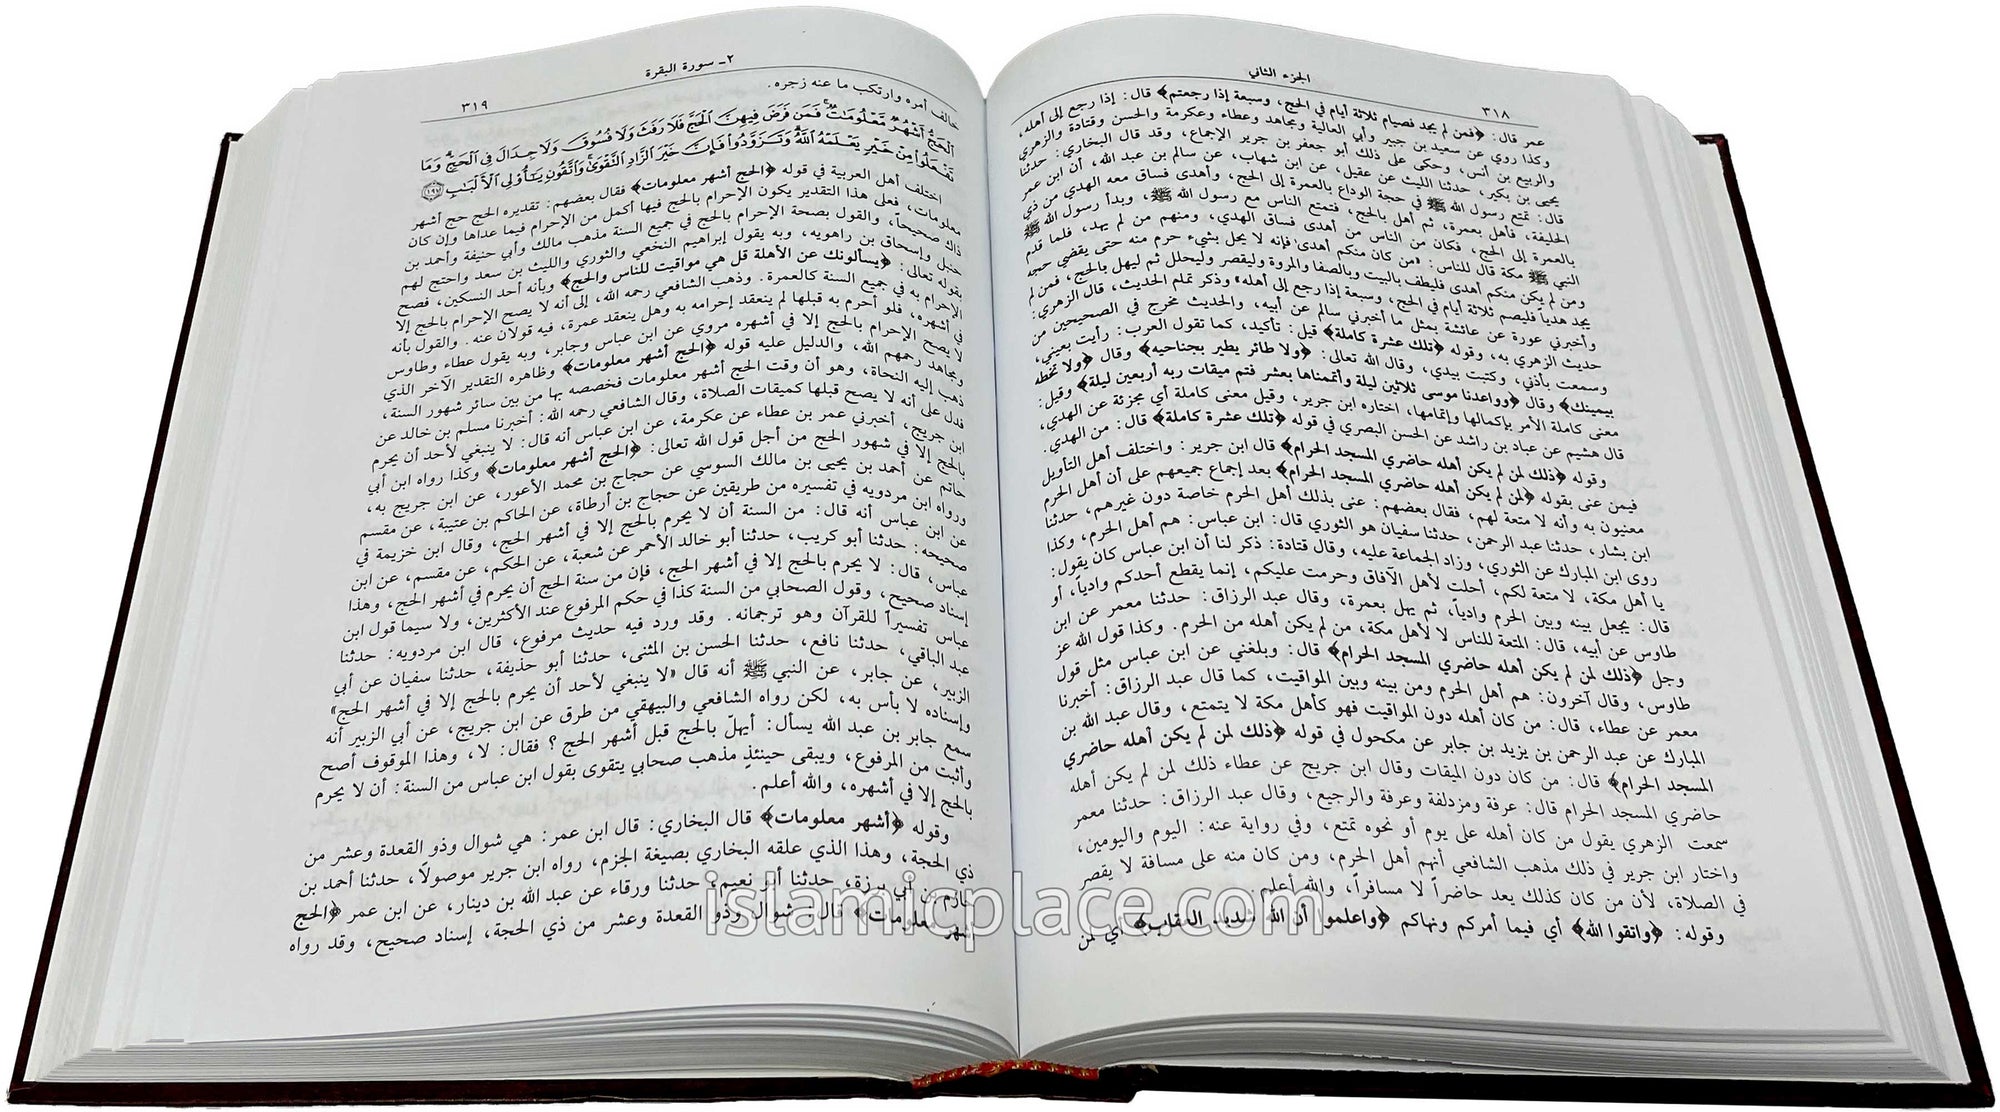 الجزء الثاني
٣١٨
عمر قال: ﴿فمن لم يجد فصيام ثلاثة أيام في الحج، وسبعة إذا رجعتم﴾ قال: إذا رجع إلى أهله،
وكذا روي عن سعيد بن جبير وأبي العالية ومجاهد وعطاء وعكرمة والحسن وقتادة والزهري
والربيع بن أنس، وحكى على ذلك أبو جعفر بن جرير الإجماع، وقد قال البخاري: حدثنا
يحيى بن بكير، حدثنا الليث عن عقيل، عن ابن شهاب، عن سالم بن عبد الله، أن ابن عمر
قال: تمتع رسول الله ﷺ في حجة الوداع بالعمرة إلى الحج، وأهدى فساق معه الهدي من ذي
الحليفة، فأهل بعمرة، ثم أهل بالحج، فتمتع الناس مع رسول الله ﷺ، وبدأ رسول الله ﷺ
بالعمرة إلى الحج، فكان من الناس من أهدى فساق الهدي، ومنهم من لم يهد، فلما قدم
النبي ﷺ مكة قال للناس: «من كان منكم أهدى فإنه لا يحل بشيء حرم منه حتى يقضي حجه
ومن لم يكن منكم أهدى فليطف بالبيت وبالصفا والمروة وليقصر وليحلل ثم ليهل بالحج، فمن لم
يجد هدياً فليصم ثلاثة أيام في الحج، وسبعة إذا رجع إلى أهله» وذكر تمام الحديث، قال الزهري:
وأخبرني عروة عن عائشة بمثل ما أخبرني سالم عن أبيه، والحديث مخرج في الصحيحين من
حديث الزهري به، وقوله ﴿تلك عشرة كاملة﴾ قيل: تأكيد، كما تقول العرب: رأيت بعيني،
وسمعت بأذني، وكتبت بيدي، وقال الله تعالى: ﴿ولا طائر يطير بجناحيه﴾ وقال ﴿ولا تخطه
بيمينك﴾ وقال ﴿وواعدنا موسى ثلاثين ليلة وأتممناها بعشر فتم ميقات ربه أربعين ليلة﴾ وقيل:
معنى كاملة الأمر بإكمالها وإتمامها، اختاره ابن جرير، وقيل معنى كاملة أي مجزئة عن الهدي،
قال هشيم عن عباد بن راشد عن الحسن البصري في قوله ﴿تلك عشرة كاملة﴾ قال: من الهدي.
وقوله ﴿ذلك لمن لم يكن أهله حاضري المسجد الحرام﴾ قال ابن جرير: واختلف أهل التأويل
فيمن عنى بقوله ﴿لمن لم يكن أهله حاضري المسجد الحرام﴾ بعد إجماع جميعهم على أن أهل الحرم
معنيون به وأنه لا متعة لهم، فقال بعضهم: عنى بذلك أهل الحرم خاصة دون غيرهم، حدثنا
ابن بشار، حدثنا عبد الرحمن، حدثنا سفيان هو الثوري قال: قال ابن عباس: هم أهل الحرم، وكذا
روى ابن المبارك عن الثوري، وزاد الجماعة عليه، وقال قتادة: ذكر لنا أن ابن عباس كان يقول:
يا أهل مكة، لا متعة لكم، أحلت لأهل الآفاق وحرمت عليكم، إنما يقطع أحدكم وادياً، أو
قال: يجعل بينه وبين الحرم وادياً، ثم يهل بعمرة، وقال عبد الرزاق: حدثنا معمر عن ابن
طاوس عن أبيه، قال: المتعة للناس لا لأهل مكة، من لم يكن أهله من الحرم. وكذا قول الله عز
وجل ﴿ذلك لمن لم يكن أهله حاضري المسجد الحرام﴾ قال: وبلغني عن ابن عباس مثل قول
طاوس، وقال آخرون: هم أهل الحرم ومن بينه وبين المواقيت، كما قال عبد الرزاق: أخبرنا
معمر عن عطاء، قال: من كان أهله دون المواقيت فهو كأهل مكة لا يتمتع، وقال عبد الله بن
المبارك عن عبد الرحمن بن يزيد بن جابر عن مكحول في قوله ﴿ذلك لمن لم يكن أهله حاضري
المسجد الحرام﴾ قال: من كان دون الميقات وقال ابن جريج عن عطاء ذلك لمن لم يكن أهله
حاضري المسجد الحرام قال: عرفة ومزدلفة وعرفة والرجيع، وقال عبد الرزاق: حدثنا معمر
سمعت الزهري يقول من كان أهله على يوم أو نحوه تمتع، وفي رواية عنه: اليوم واليومين،
واختار ابن جرير في ذلك مذهب الشافعي أنهم أهل الحرم، ومن كان منه على مسافة لا يقصر
في الصلاة، لأن من كان كذلك يعد حاضراً لا مسافراً، والله أعلم.
وقوله: ﴿واتقوا الله﴾ أي فيما أمركم ونهاكم ﴿واعلموا أن الله شديد العقاب﴾ أي لمن
٢ـ سورة البقرة
٣١٩
خالف أمره وارتكب ما عنه زجره.
ٱلْحَجُّ أَشْهُرٌ مَّعْلُومَٰتٌ فَمَن فَرَضَ فِيهِنَّ ٱلْحَجَّ فَلَا رَفَثَ وَلَا فُسُوقَ وَلَا جِدَالَ فِى ٱلْحَجِّ وَمَا
تَفْعَلُوا۟ مِنْ خَيْرٍ يَعْلَمْهُ ٱللَّهُ وَتَزَوَّدُوا۟ فَإِنَّ خَيْرَ ٱلزَّادِ ٱلتَّقْوَىٰ وَٱتَّقُونِ يَٰٓأُو۟لِى ٱلْأَلْبَٰبِ ١٩٧
اختلف أهل العربية في قوله ﴿الحج أشهر معلومات﴾ فقال بعضهم: تقديره الحج حج أشهر
معلومات، فعلى هذا التقدير يكون الإحرام بالحج فيها أكمل من الإحرام فيما عداها وإن كان
ذاك صحيحاً، والقول بصحة الإحرام بالحج في جميع السنة مذهب مالك وأبي حنيفة وأحمد بن
حنبل وإسحاق بن راهويه، وبه يقول إبراهيم النخعي والثوري والليث بن سعد واحتج لهم
بقوله تعالى: ﴿يسألونك عن الأهلة قل هي مواقيت للناس والحج﴾ وبأنه أحد النسكين، فصح
الإحرام به في جميع السنة كالعمرة. وذهب الشافعي رحمه الله، إلى أنه لا يصح الإحرام بالحج إلا
في أشهره، فلو أحرم به قبلها لم ينعقد إحرامه به وهل ينعقد عمرة، فيه قولان عنه. والقول بأنه
لا يصح الإحرام بالحج إلا في أشهره مروي عن ابن عباس وجابر، وبه يقول عطاء وطاوس
ومجاهد رحمهم الله، والدليل عليه قوله ﴿الحج أشهر معلومات﴾ وظاهره التقدير الآخر الذي
ذهب إليه النحاة، وهو أن وقت الحج أشهر معلومات فخصصه بها من بين سائر شهور السنة،
فدل على أنه لا يصح قبلها كميقات الصلاة، وقال الشافعي رحمه الله: أخبرنا مسلم بن خالد عن
ابن جريج، أخبرني عمر بن عطاء عن عكرمة، عن ابن عباس أنه قال: لا ينبغي لأحد أن يحرم
بالحج إلا في شهور الحج من أجل قول الله تعالى: ﴿الحج أشهر معلومات﴾ وكذا رواه ابن أبي
حاتم عن أحمد بن يحيى بن مالك السوسي عن حجاج بن محمد الأعور، عن ابن جريج به،
ورواه ابن مردويه في تفسيره من طريقين عن حجاج بن أرطاة، عن الحاكم بن عتيبة، عن مقسم
عن ابن عباس أنه قال: من السنة أن لا يحرم بالحج إلا في أشهر الحج، وقال ابن خزيمة في
صحيحه: حدثنا أبو كريب، حدثنا أبو خالد الأحمر عن شعبة، عن الحكم، عن مقسم، عن ابن
عباس، قال: لا يحرم بالحج إلا في أشهر الحج، فإن من سنة الحج أن يحرم في أشهر الحج، وهذا
إسناد صحيح، وقول الصحابي من السنة كذا في حكم المرفوع عند الأكثرين، ولا سيما قول ابن
عباس تفسيراً للقرآن وهو ترجمانه. وقد ورد فيه حديث مرفوع، قال ابن مردويه: حدثنا
عبد الباقي، حدثنا نافع، حدثنا الحسن بن المثنى، حدثنا أبو حذيفة، حدثنا سفيان عن أبي
الزبير، عن جابر، عن النبي ﷺ أنه قال «لا ينبغي لأحد أن يحرم بالحج إلا في أشهر الحج»
وإسناده لا بأس به، لكن رواه الشافعي والبيهقي من طرق عن ابن جريج، عن أبي الزبير أنه
سمع جابر بن عبد الله يسأل: أيهلّ بالحج قبل أشهر الحج؟ فقال: لا، وهذا الموقوف أصح
وأثبت من المرفوع، ويبقى حينئذٍ مذهب صحابي يتقوى بقول ابن عباس من السنة: أن لا يحرم
بالحج إلا في أشهره، والله أعلم.
وقوله ﴿أشهر معلومات﴾ قال البخاري: قال ابن عمر: هي شوال وذو القعدة وعشر من
ذي الحجة، وهذا الذي علقه البخاري بصيغة الجزم، رواه ابن جرير موصولاً، حدثنا أحمد بن
حازم بن أبي برزة، حدثنا أبو نعيم، حدثنا ورقاء عن عبد الله بن دينار، عن ابن عمر ﴿الحج
أشهر معلومات﴾ قال: شوال وذو القعدة وعشر من ذي الحجة، إسناد صحيح، وقد رواه
islamicplace.com